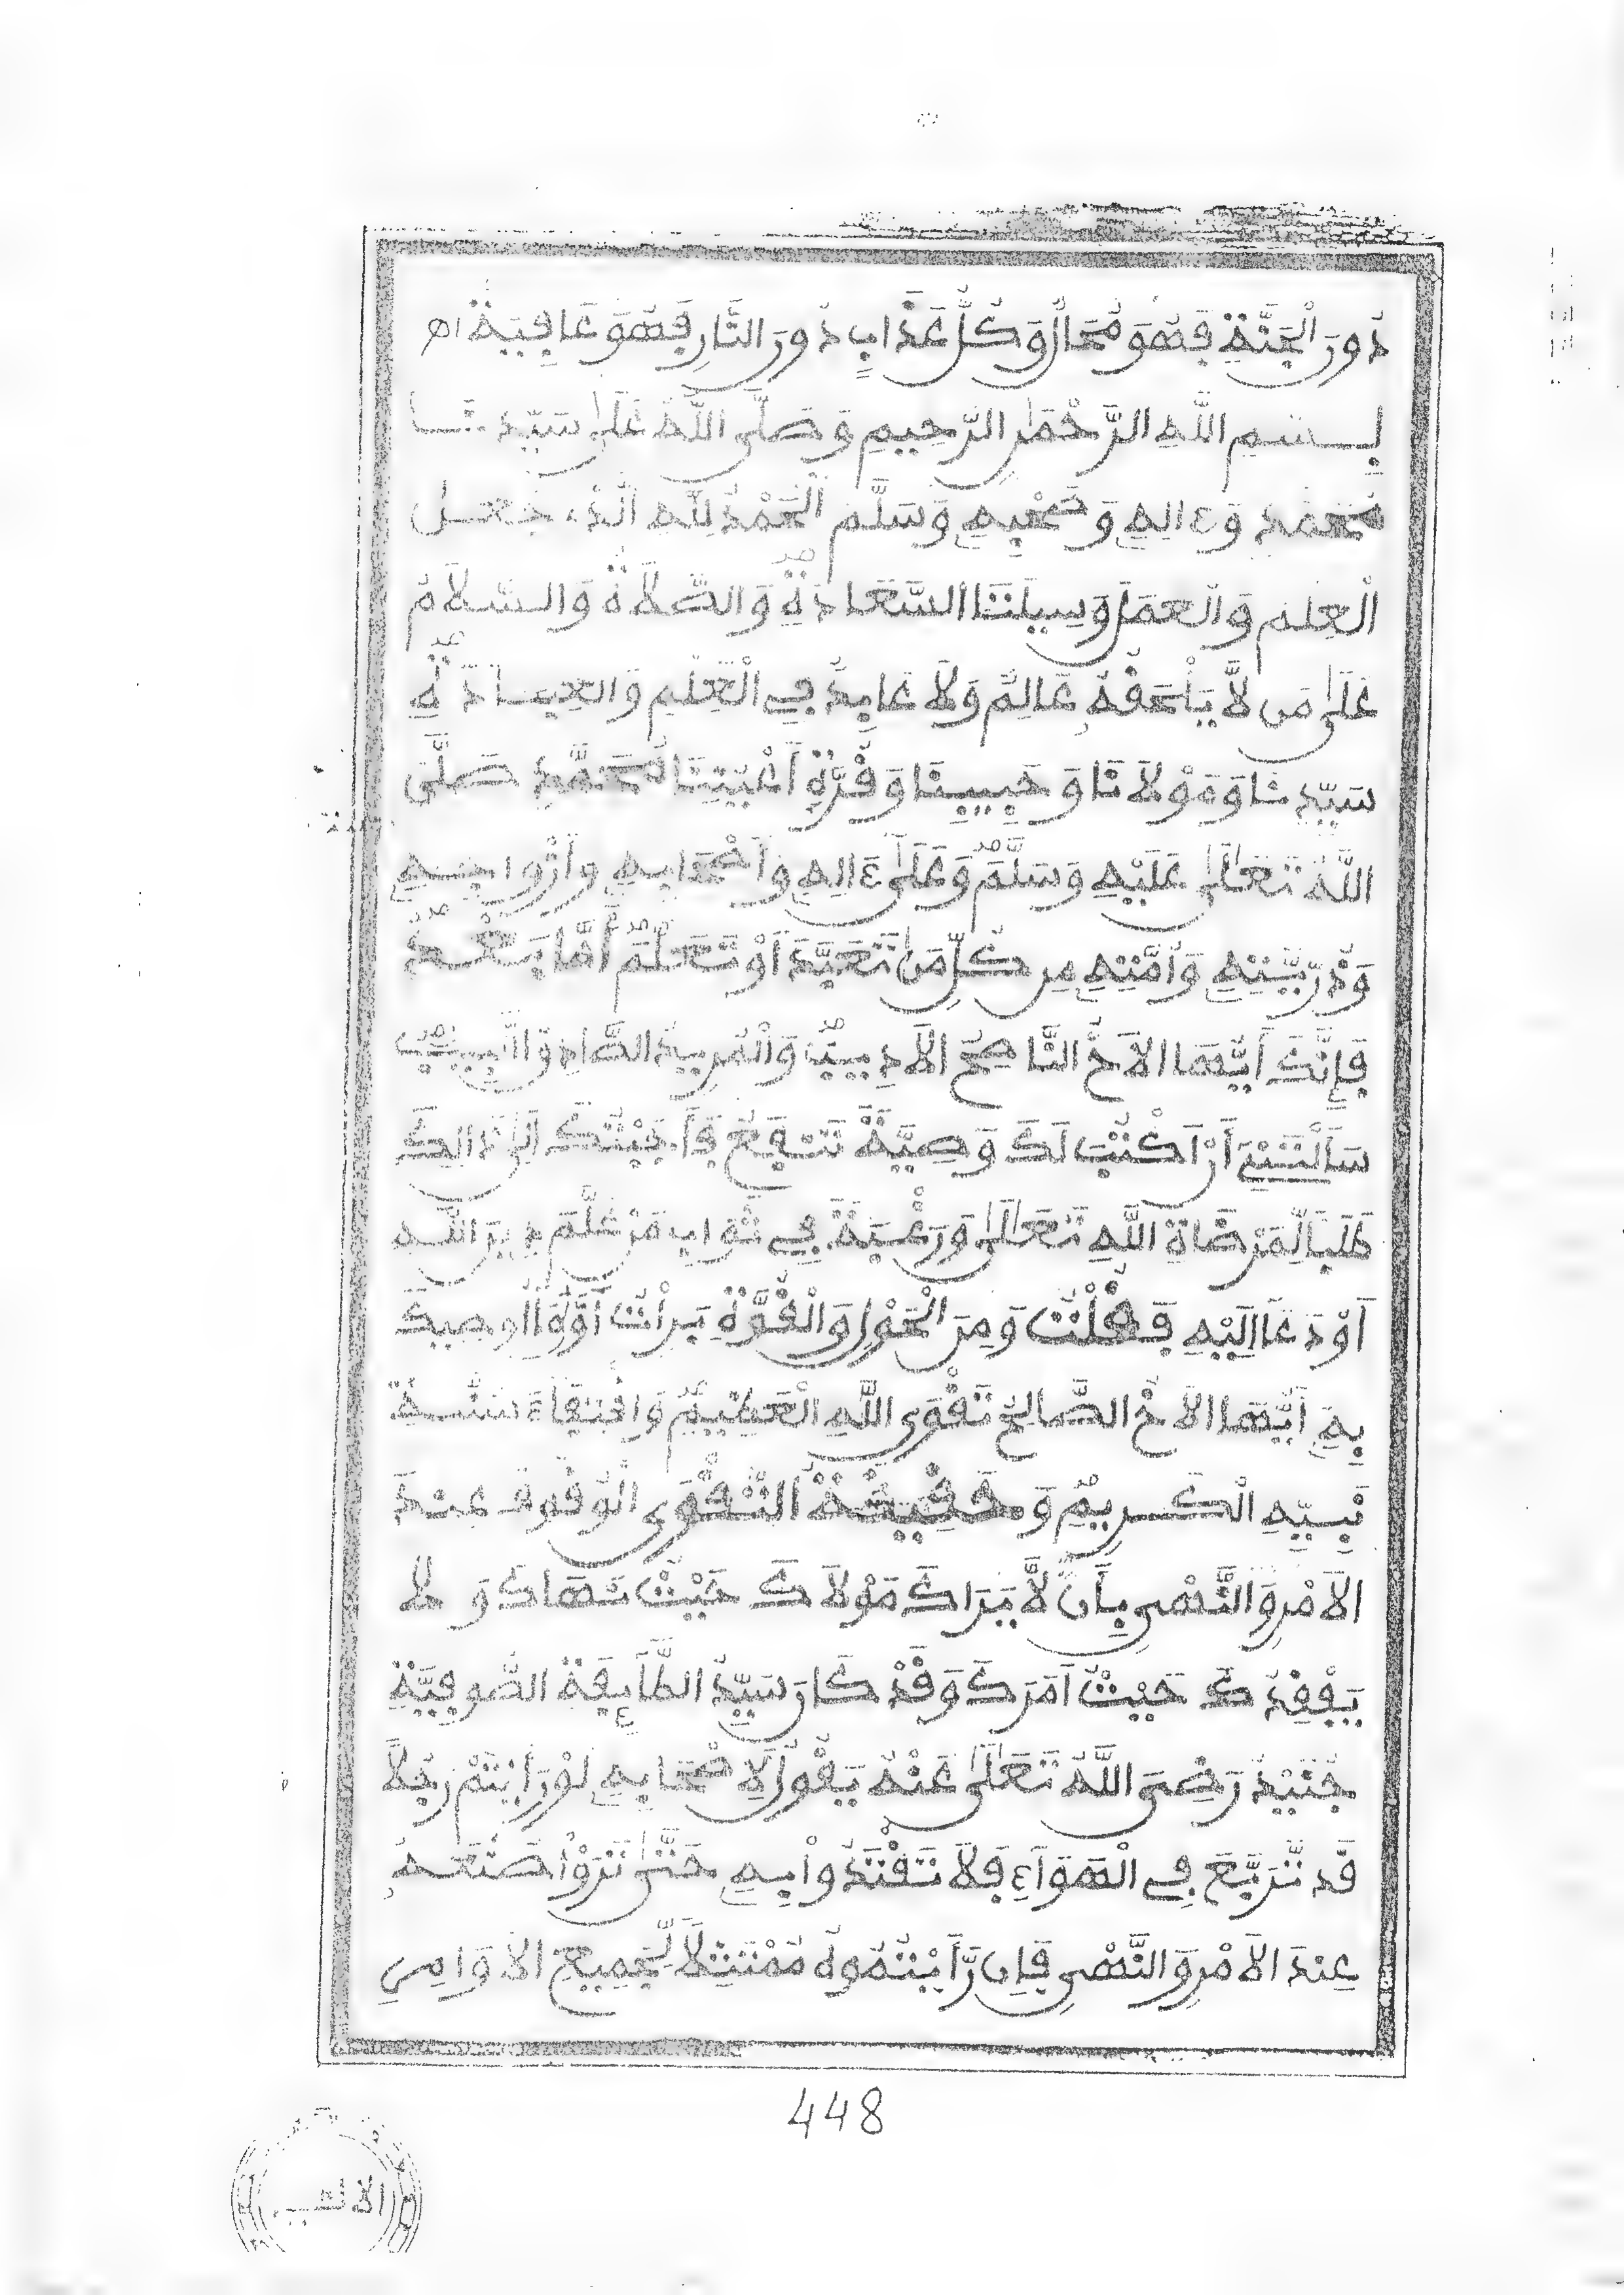 دُونَ الْجَنَّةِ فَهُوَ مُحَالٌ وَكُلُّ عَذَابٍ دُونَ النَّارِ فَهُوَ عَافِيَةٌ اه
بِسْمِ اللَّهِ الرَّحْمَٰنِ الرَّحِيمِ وَصَلَّى اللَّهُ عَلَىٰ سَيِّدِنَا
مُحَمَّدٍ وَءَالِهِ وَصَحْبِهِ وَسَلَّمَ الْحَمْدُ لِلَّهِ الَّذِي جَعَلَ
الْعِلْمَ وَالْعَمَلَ وَسِيلَتَا السَّعَادَةِ وَالصَّلَاةُ وَالسَّلَامُ
عَلَىٰ مَن لَّا يَلْحَقُهُ عَالِمٌ وَلَا عَابِدٌ فِي الْعِلْمِ وَالْعِبَادَةِ
سَيِّدِنَا وَمَوْلَانَا وَحَبِيبِنَا وَقُرَّةِ أَعْيُنِنَا مُحَمَّدٍ صَلَّى
اللَّهُ تَعَالَىٰ عَلَيْهِ وَسَلَّمَ وَعَلَىٰ ءَالِهِ وَأَصْحَابِهِ وَأَزْوَاجِهِ
وَذُرِّيَّتِهِ وَأُمَّتِهِ مِن كُلِّ مَن تَعَبَّدَ أَوْ تَعَلَّمَ أَمَّا بَعْدُ
فَإِنَّكَ أَيُّهَا الْأَخُ النَّاصِحُ الْأَدِيبُ وَالْمُرِيدُ الصَّادِقُ اللَّبِيبُ
سَأَلْتَنِي أَنْ أَكْتُبَ لَكَ وَصِيَّةً تَنْفَعُ فَأَجَبْتُكَ إِلَىٰ ذَالِكَ
طَلَبًا لِّمَرْضَاةِ اللَّهِ تَعَالَىٰ وَرَغْبَةً فِي ثَوَابِ مَنْ عَلَّمَ دِينَ اللَّهِ
أَوْ دَعَا إِلَيْهِ فَقُلْتُ وَمِنَ الْحَوْلِ وَالْقُوَّةِ بَرَأْتُ أَوَّلُ مَا أُوصِيكَ
بِهِ أَيُّهَا الْأَخُ الصَّالِحُ تَقْوَى اللَّهِ الْعَظِيمِ وَاقْتِفَاءُ سُنَّةِ
نَبِيِّهِ الْكَرِيمِ وَحَقِيقَةُ التَّقْوَى الْوُقُوفُ عِنْدَ
الْأَمْرِ وَالنَّهْيِ بِأَن لَّا يَرَاكَ مَوْلَاكَ حَيْثُ نَهَاكَ وَلَا
يَفْقِدُكَ حَيْثُ أَمَرَكَ وَقَدْ كَانَ سَيِّدُ الطَّائِفَةِ الصُّوفِيَّةِ
جُنَيْدٌ رَضِيَ اللَّهُ تَعَالَىٰ عَنْهُ يَقُولُ لِأَصْحَابِهِ لَوْ رَأَيْتُمْ رَجُلًا
قَد تَّرَبَّعَ فِي الْهَوَاءِ فَلَا تَقْتَدُوا بِهِ حَتَّىٰ تَرَوْا صُنْعَهُ
عِنْدَ الْأَمْرِ وَالنَّهْيِ فَإِن رَّأَيْتُمُوهُ مُمْتَثِلًا لِّجَمِيعِ الْأَوَامِرِ
448